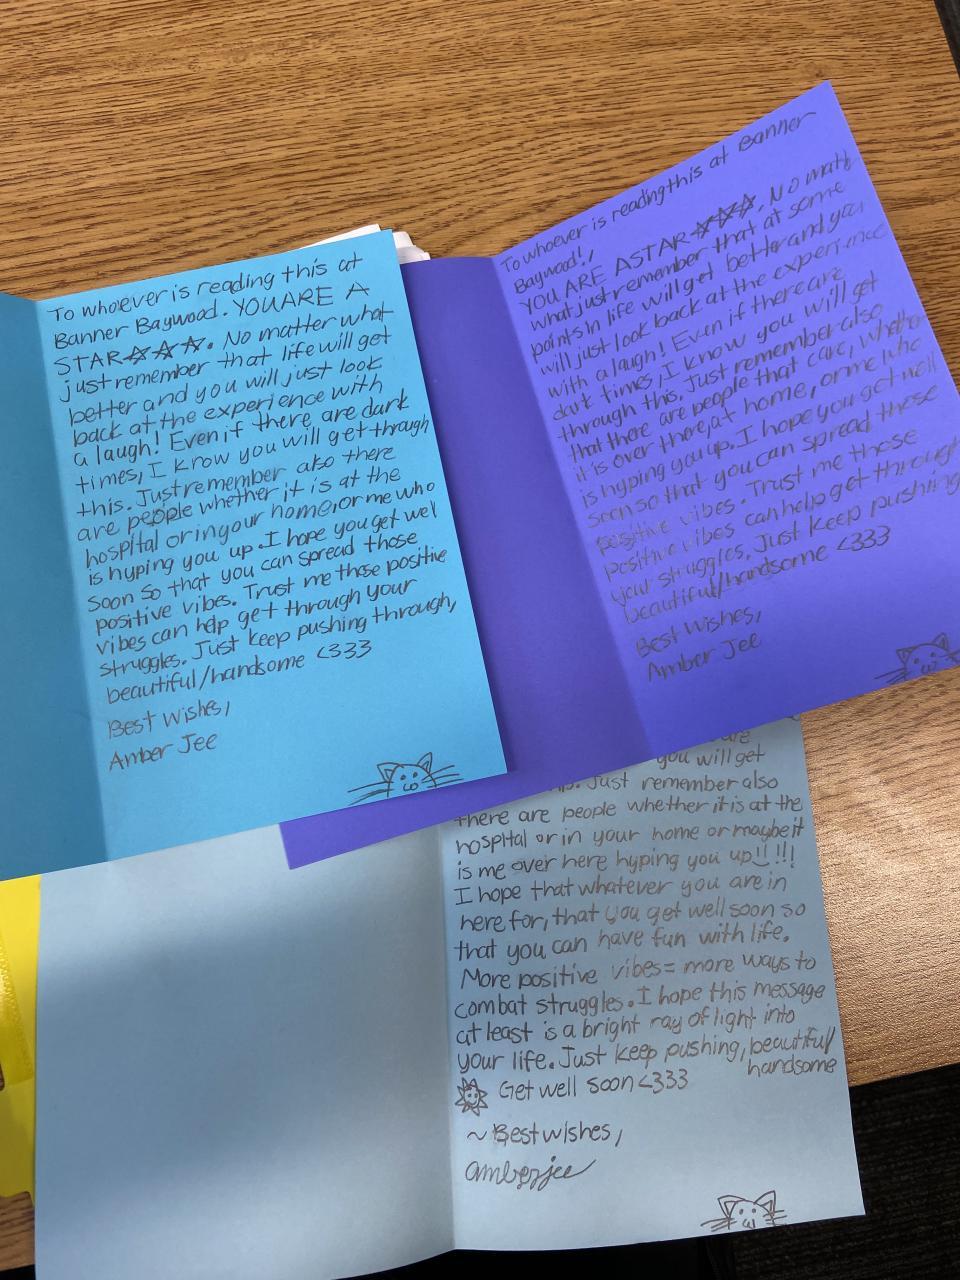 To whoever is reading this at
Banner Baywood. YOU ARE A
STAR☆☆☆. No matter what
just remember that life will get
better and you will just look
back at the experience with
a laugh! Even if there are dark
times, I know you will get through
this. Just remember also there
are people whether it is at the
hospital or in your home, or me who
is hyping you up. I hope you get well
soon so that you can spread those
positive vibes. Trust me those positive
vibes can help get through your
struggles. Just keep pushing through,
beautiful/handsome <333
Best Wishes,
Amber Jee
To whoever is reading this at Banner
Baywood!,
YOU ARE A STAR☆☆☆. No matt
what just remember that at some
points in life will get better and you
will just look back at the experience
with a laugh! Even if there are
dark times, I know you will get
through this. Just remember also
that there are people that care, whether
it is over there, at home, or me who
is hyping you up. I hope you get well
soon so that you can spread these
positive vibes. Trust me those
positive vibes can help get through
your struggles. Just keep pushing
beautiful/handsome <333
Best Wishes,
Amber Jee
are
you will get
Just remember also
there are people whether it is at the
hospital or in your home or maybe it
is me over here hyping you up!! !!!
I hope that whatever you are in
here for, that you get well soon so
that you can have fun with life.
More positive vibes = more ways to
combat struggles. I hope this message
at least is a bright ray of light into
your life. Just keep pushing, beautiful/
handsome
Get well soon <333
~ Best wishes,
amberjee